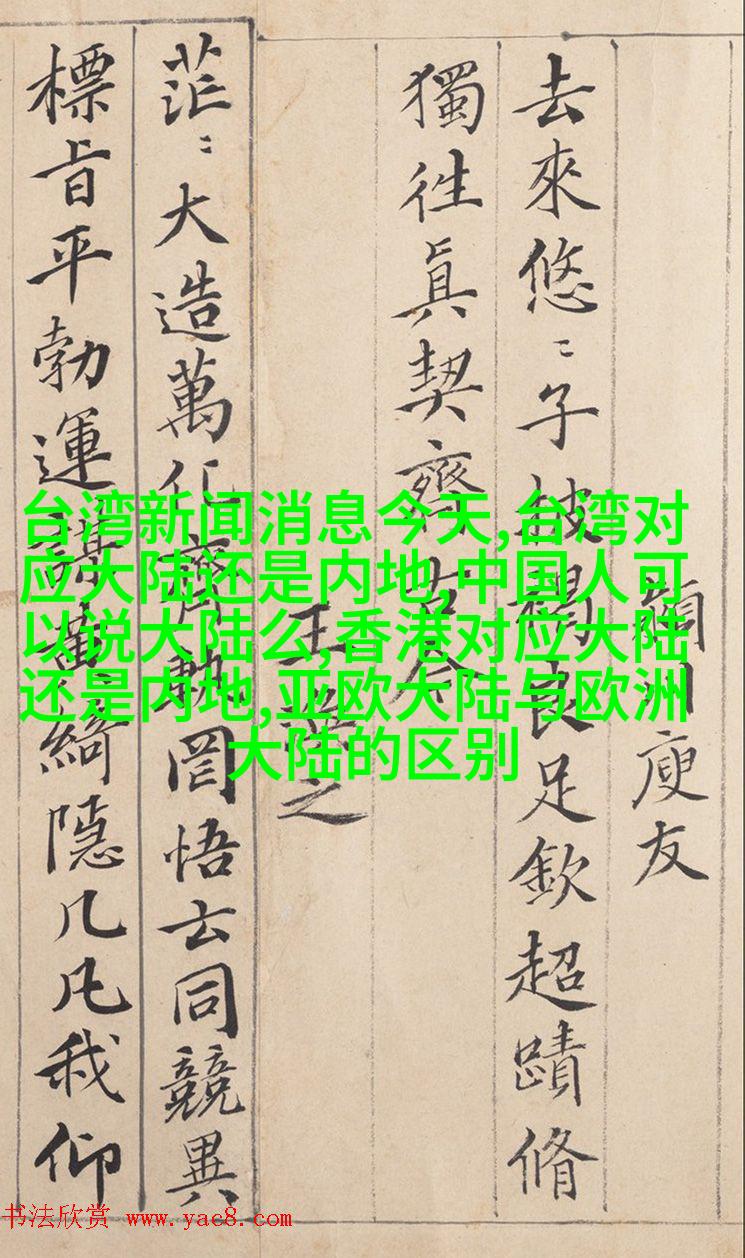 潁川庾友
去來悠〻子披褐良足欽超蹟脩
獨徃眞契齊古今
王凝之
茫〻大造萬化齊軌罔悟玄同競異
標旨平勃運謀黃綺隱几凡我仰
台湾新闻消息今天,台湾对
应大陆还是内地,中国人可
以说大陆么,香港对应大陆
还是内地,亚欧大陆与欧洲
大陆的区别
书法欣赏 www.yac8.com